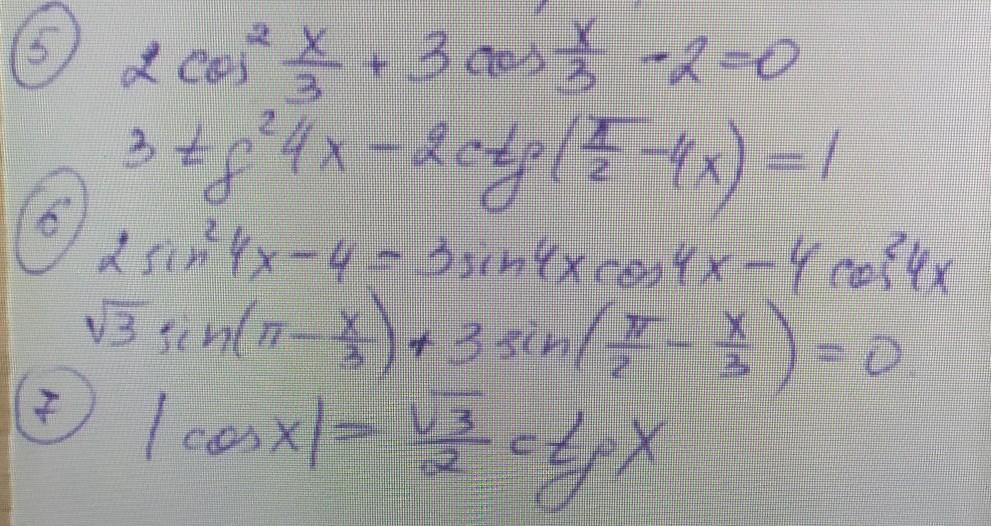 ⑤ 2 cos² x/3 + 3 cos x/3 - 2 = 0
3 tg² 4x - 2 ctg(π/2 - 4x) = 1
⑥ 2 sin² 4x - 4 = 3 sin 4x cos 4x - 4 cos² 4x
√3 sin(π - x/3) + 3 sin(π/2 - x/3) = 0
⑦ |cos x| = √3/2 ctg x